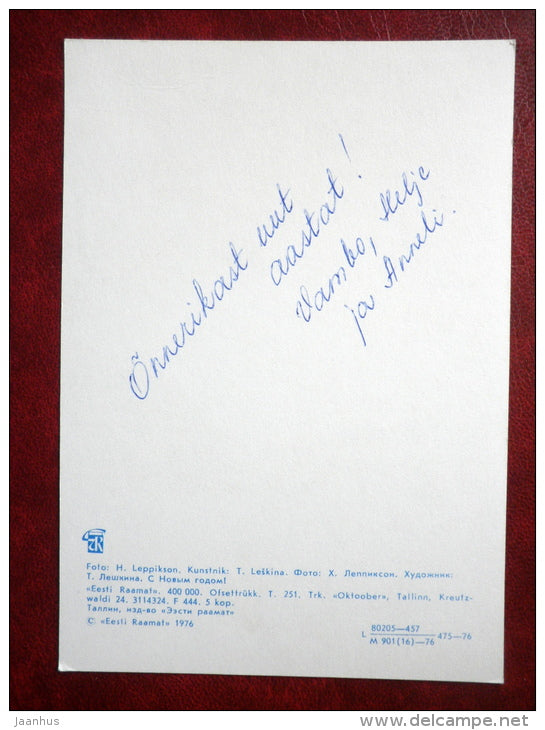 Õnnerikast uut
aastat!
Vambo, Helje
ja Anneli.
Foto: H. Leppikson. Kunstnik: T. Leškina. Фото: Х. Леппиксон. Художник:
Т. Лешкина. С Новым годом!
«Eesti Raamat». 400 000. Ofsettrükk. T. 251. Trk. «Oktoober», Tallinn, Kreutz-
waldi 24. 3114324. F 444. 5 kop.
Таллин, изд-во «Ээсти раамат»
© «Eesti Raamat» 1976
L 80205—457
M 901(16)—76 475—76
jaanhus
www.delcampe.net